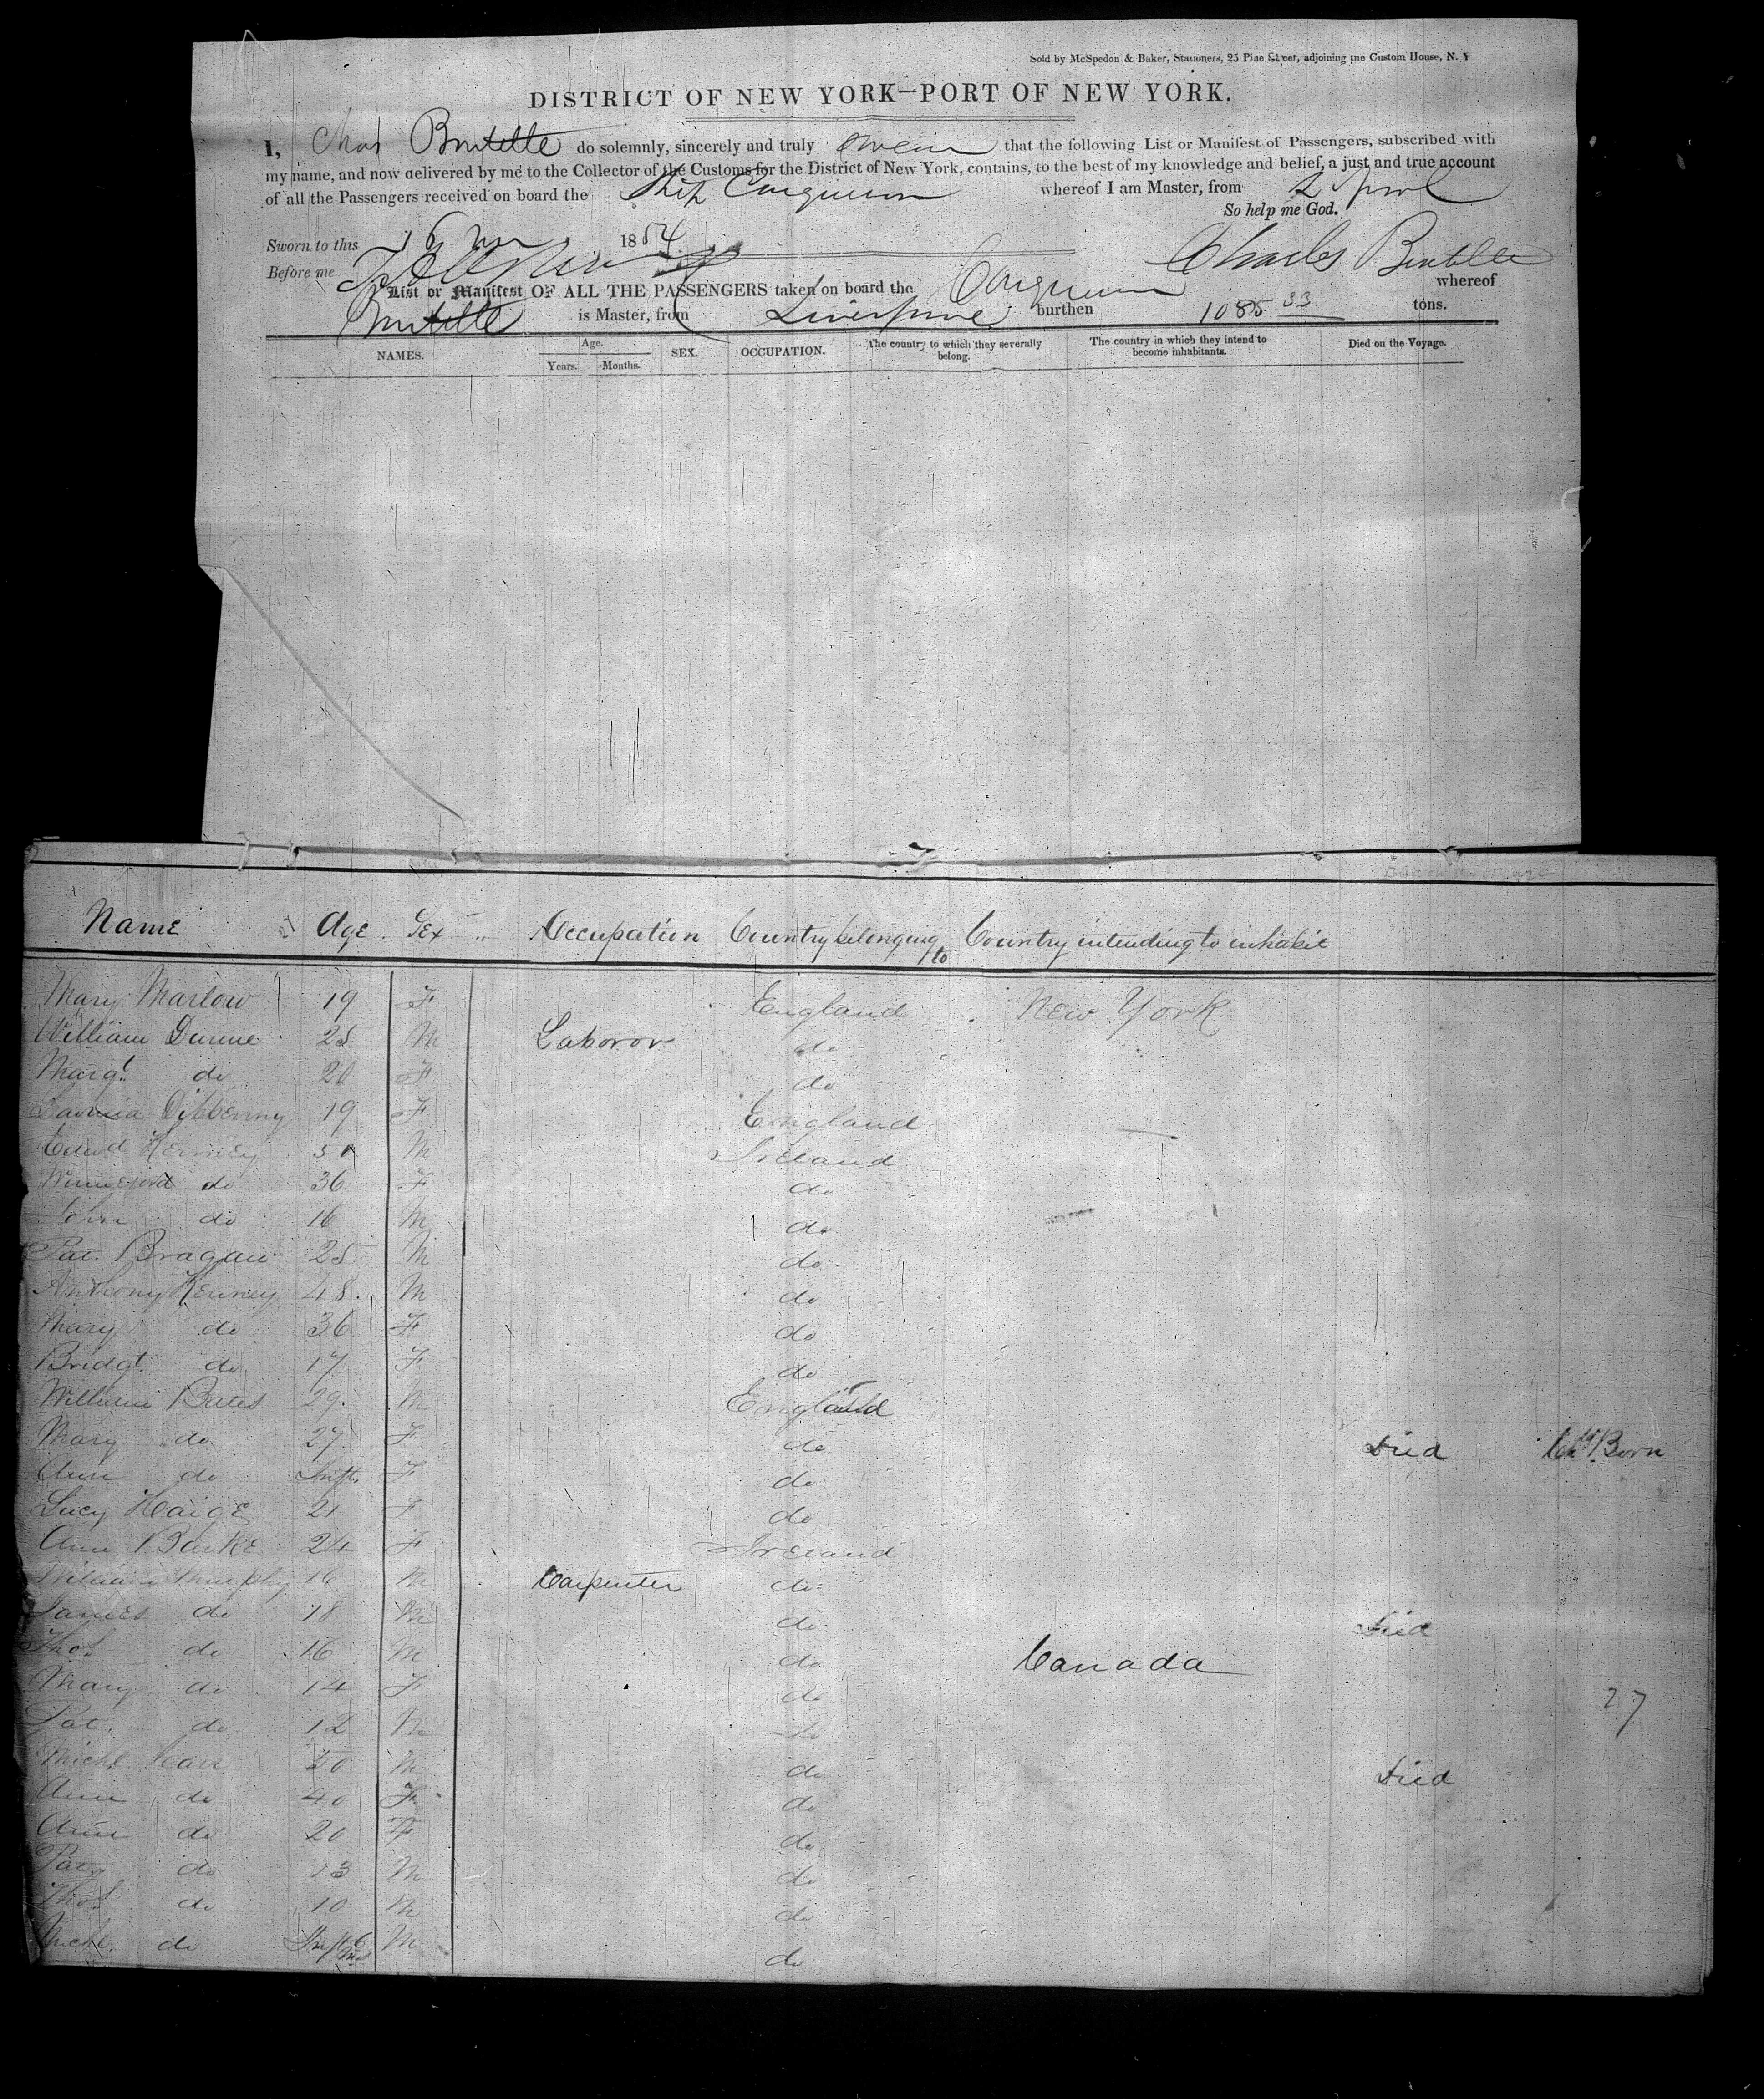 Sold by McSpedon & Baker, Stationers, 25 Pine Street, adjoining the Custom House, N. Y
DISTRICT OF NEW YORK—PORT OF NEW YORK.
I, Chas do solemnly, sincerely and truly swear that the following List or Manifest of Passengers, subscribed with
my name, and now delivered by me to the Collector of the Customs for the District of New York, contains, to the best of my knowledge and belief, a just and true account
of all the Passengers received on board the Ship whereof I am Master, from L pool
So help me God.
Sworn to this 16 1854
Charles
Before me
List or Manifest OF ALL THE PASSENGERS taken on board the whereof
is Master, from Liverpool burthen 1085 33 tons.
NAMES. Age. Years. Months. SEX. OCCUPATION. The country to which they severally belong. The country in which they intend to become inhabitants. Died on the Voyage.
Name Age Sex Occupation Country belonging to Country intending to inhabit
Mary Marlow 19 F England New York
William Dunne 25 M Laboror do
Margt do 20 F do
19 F England
Edwd 50 M Ireland
do 36 F do
John do 16 M do
Pat. 25 M do
Anthony Kenney 48 M do
Mary do 36 F do
Bridgt. do 17 F do
William Bates 29 M England
Mary do 27 F do Died Chd Born
Ann do Inft. F do
Lucy Haige 21 F do
Ann Burke 24 F Ireland
William Murphy 16 M Carpenter do
James do 18 M do Died
Thos. do 16 M do Canada
Mary do 14 F do
Pat. do 12 M do
27
Michl. 50 M do Died
Ann do 40 F do
Ann do 20 F do
do 13 M do
Thos. do 10 M do
Michl. do Inft 6 Mos M do